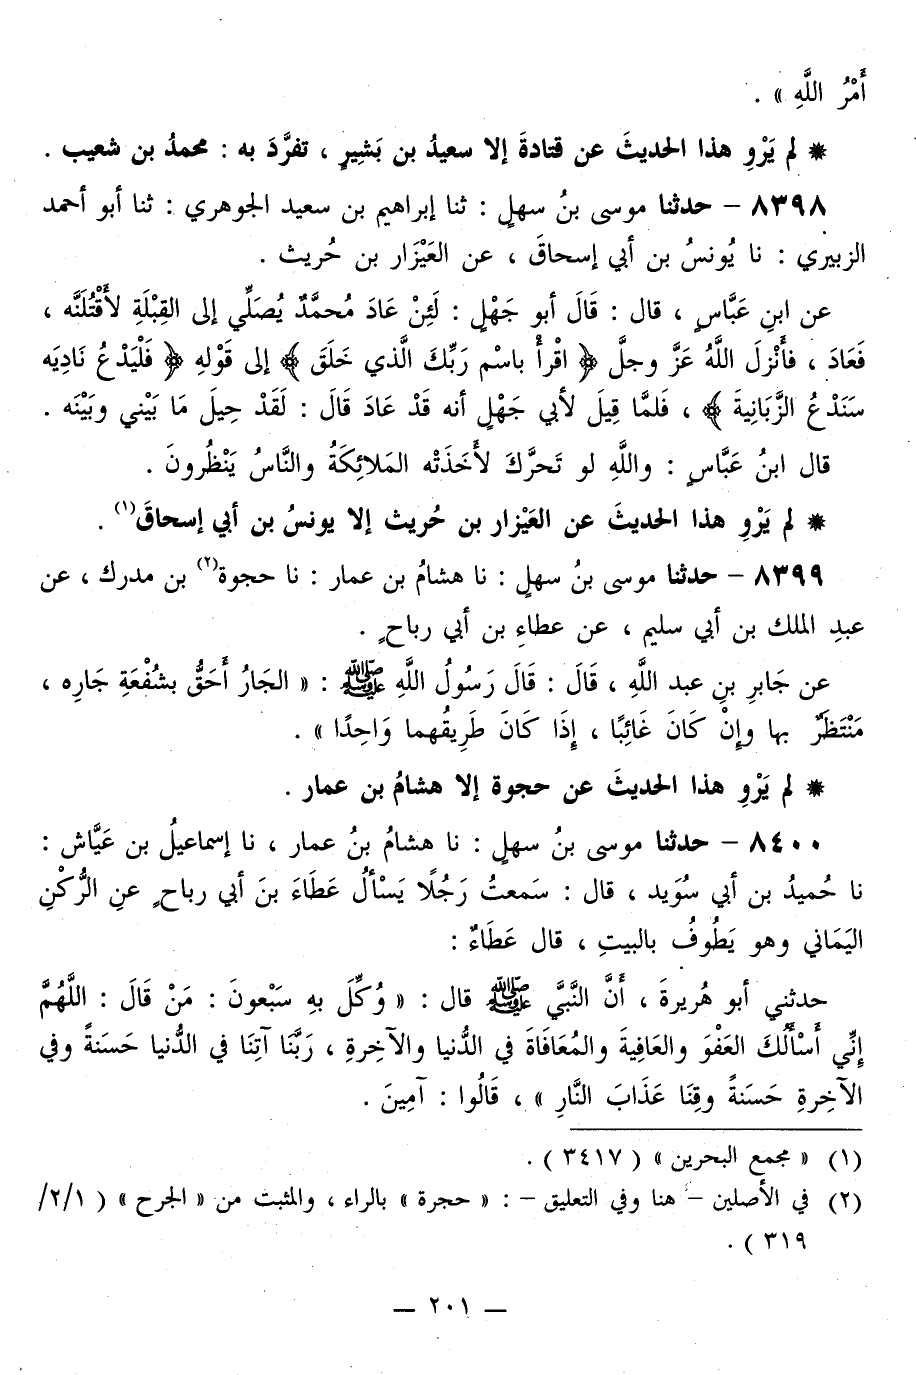 أَمْرُ اللَّهِ » .
* لم يَرْوِ هذا الحديثَ عن قتادةَ إلا سعيدُ بن بَشيرٍ ، تفرَّدَ به : محمدُ بن شعيب .
٨٣٩٨ – حدثنا موسى بنُ سهلٍ : ثنا إبراهيم بن سعيد الجوهري : ثنا أبو أحمد
الزبيري : نا يُونسُ بن أبي إسحاقَ ، عن العَيْزار بن حُريث .
عن ابنِ عبَّاسٍ ، قال : قَالَ أبو جَهْلٍ : لَئِنْ عَادَ مُحمَّدٌ يُصَلِّي إلى القِبْلَةِ لأَقْتُلَنَّه ،
فَعَادَ ، فأَنْزلَ اللَّهُ عَزَّ وجلَّ ﴿ اقْرأْ باسْمِ رَبِّكَ الَّذي خَلَقَ ﴾ إلى قَوْلِهِ ﴿ فَلْيَدْعُ نَادِيَه
سَنَدْعُ الزَّبَانِيةَ ﴾ ، فَلمَّا قِيلَ لأبي جَهْلٍ أنه قَدْ عَادَ قَالَ : لَقَدْ حِيلَ مَا بَيْني وبَيْنَه .
قال ابنُ عَبَّاسٍ : واللَّهِ لو تَحرَّكَ لأَخَذَتْه المَلائِكَةُ والنَّاسُ يَنْظُرونَ .
* لم يَرْوِ هذا الحديثَ عن العَيْزار بن حُريث إلا يونسُ بن أبي إسحاقَ(١) .
٨٣٩٩ – حدثنا موسى بنُ سهلٍ : نا هشامُ بن عمار : نا حجوة(٢) بن مدرك ، عن
عبدِ الملك بن أبي سليم ، عن عطاءِ بن أبي رباحٍ .
عن جَابرِ بنِ عبد اللَّهِ ، قَالَ : قَالَ رَسُولُ اللَّهِ ﷺ : « الجَارُ أَحَقُّ بشُفْعَةِ جَارِه ،
مَنْتَظَرٌ بها وإنْ كَانَ غَائِبًا ، إذَا كَانَ طَرِيقُهما وَاحِدًا » .
* لم يَرْوِ هذا الحديثَ عن حجوة إلا هشامُ بن عمار .
٨٤٠٠ – حدثنا موسى بنُ سهلٍ : نا هشامُ بنُ عمار ، نا إسماعيلُ بن عَيَّاش :
نا حُميدُ بن أبي سُوَيد ، قال : سَمعتُ رَجُلًا يَسْألُ عَطَاءَ بنَ أبي رباحٍ عنِ الرُّكْنِ
اليَمَاني وهو يَطُوفُ بالبيتِ ، قال عَطَاءٌ :
حدثني أبو هُريرةَ ، أَنَّ النَّبيَّ ﷺ قال : « وُكِّلَ بهِ سَبْعونَ : مَنْ قَالَ : اللَّهُمَّ
إنِّي أَسْأَلُكَ العَفْوَ والعَافِيةَ والمُعَافَاةَ في الدُّنيا والآخِرةِ ، رَبَّنَا آتِنَا في الدُّنيا حَسَنَةً وفي
الآخِرةِ حَسَنةً وقِنَا عَذَابَ النَّارِ » ، قَالُوا : آمِينَ .
(١) « مجمع البحرين » ( ٣٤١٧ ) .
(٢) في الأصلين – هنا وفي التعليق – : « حجرة » بالراء ، والمثبت من « الجرح » ( ١/٢/
٣١٩ ) .
— ٢٠١ —